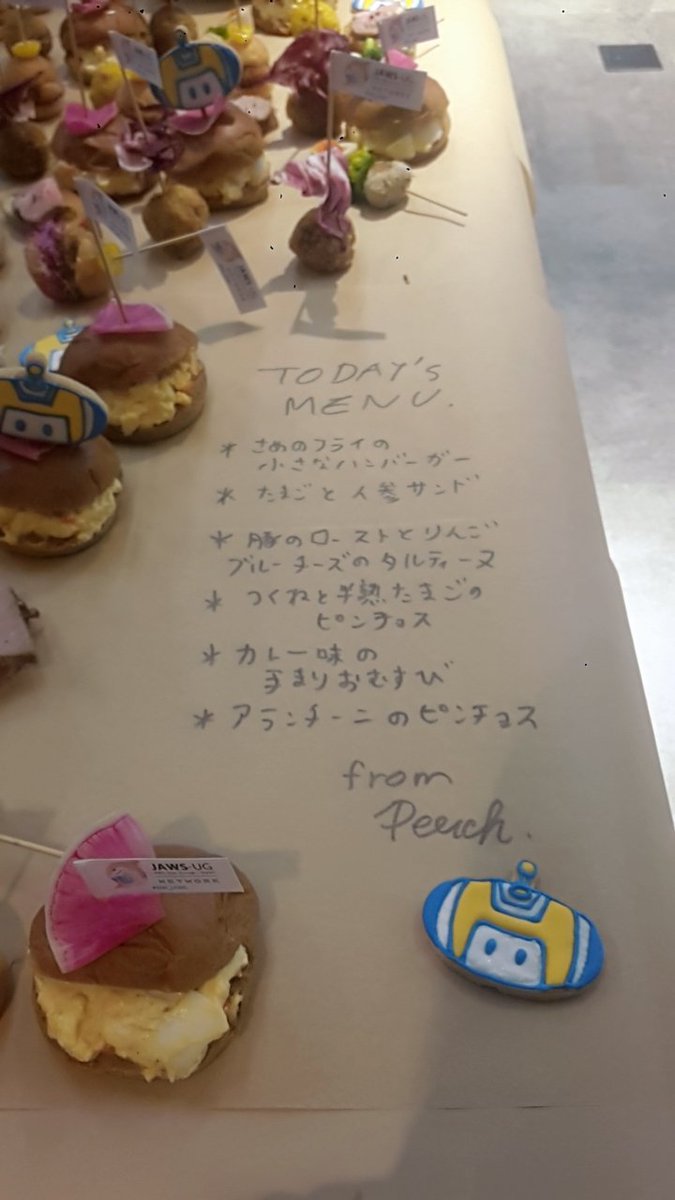 JAWS-UG
TODAY'S
MENU.
* さめのフライの
小さなハンバーガー
* たまごと人参サンド
* 豚のローストとりんご
ブルーチーズのタルティーヌ
* つくねと半熟たまごの
ピンチョス
* カレー味の
手まりおむすび
* アランチーニのピンチョス
from
Peech.
JAWS-UG
NETWORK